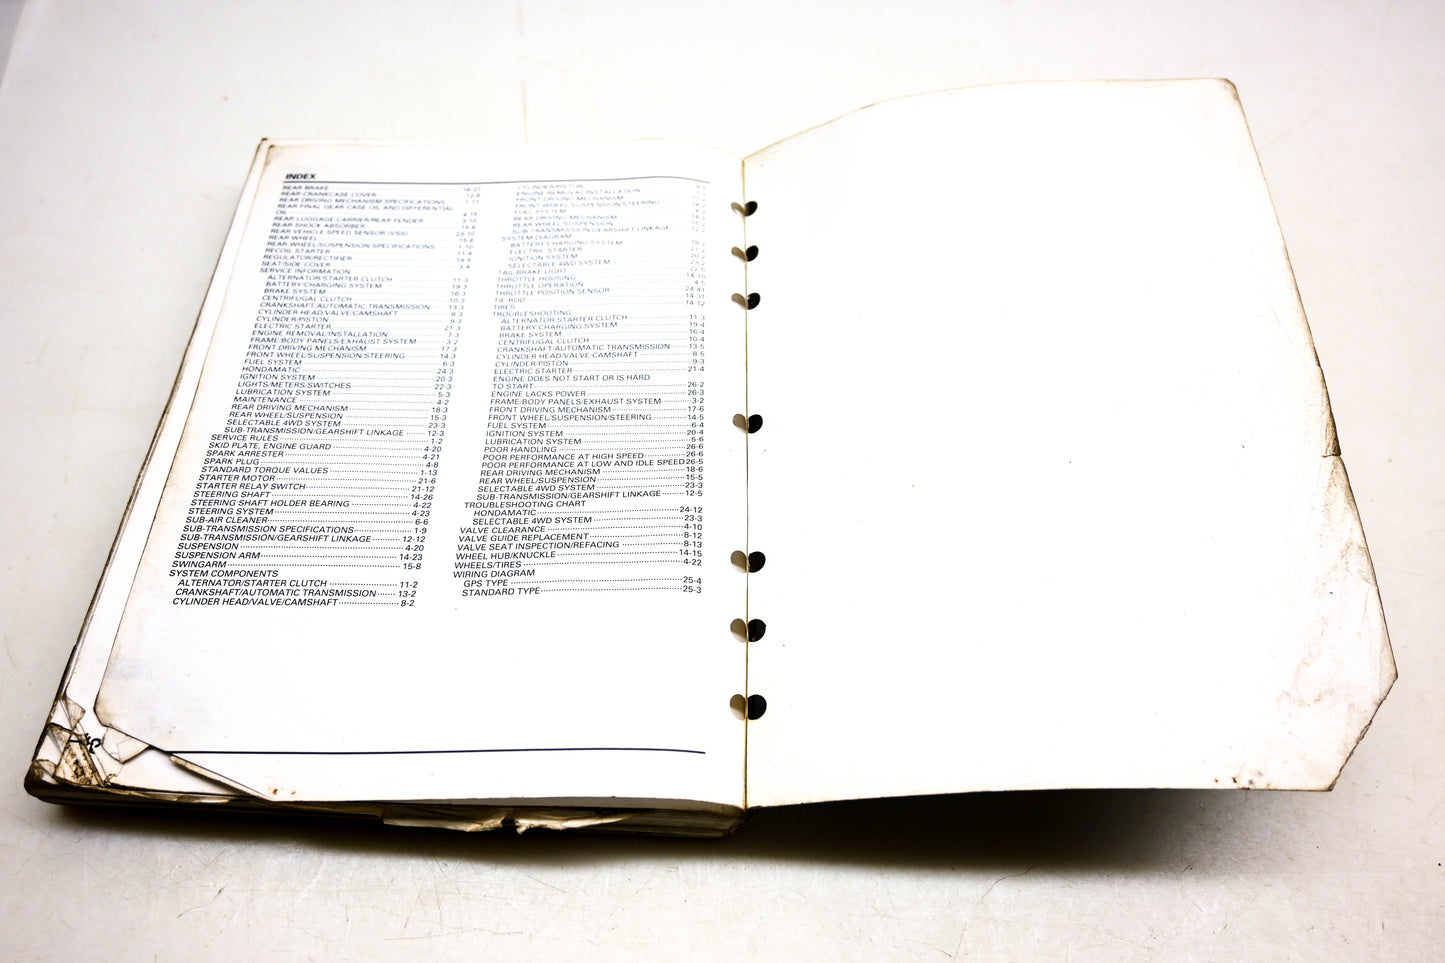 INDEX
REAR BRAKE 16-21
REAR CRANKCASE COVER 12-9
REAR DRIVING MECHANISM SPECIFICATIONS 1-11
REAR FINAL GEAR CASE OIL AND DIFFERENTIAL
OIL 4-15
REAR LUGGAGE CARRIER/REAR FENDER 3-10
REAR SHOCK ABSORBER 15-6
REAR VEHICLE SPEED SENSOR (VSS) 23-10
REAR WHEEL 15-6
REAR WHEEL/SUSPENSION SPECIFICATIONS 1-10
RECOIL STARTER 11-4
REGULATOR/RECTIFIER 19-9
SEAT/SIDE COVER 3-4
SERVICE INFORMATION
ALTERNATOR/STARTER CLUTCH 11-3
BATTERY/CHARGING SYSTEM 19-3
BRAKE SYSTEM 16-3
CENTRIFUGAL CLUTCH 10-3
CRANKSHAFT/AUTOMATIC TRANSMISSION 13-3
CYLINDER HEAD/VALVE/CAMSHAFT 8-3
CYLINDER/PISTON 9-3
ELECTRIC STARTER 21-3
ENGINE REMOVAL/INSTALLATION 7-3
FRAME/BODY PANELS/EXHAUST SYSTEM 3-2
FRONT DRIVING MECHANISM 17-3
FRONT WHEEL/SUSPENSION/STEERING 14-3
FUEL SYSTEM 6-3
HONDAMATIC 24-3
IGNITION SYSTEM 20-3
LIGHTS/METERS/SWITCHES 22-3
LUBRICATION SYSTEM 5-3
MAINTENANCE 4-2
REAR DRIVING MECHANISM 18-3
REAR WHEEL/SUSPENSION 15-3
SELECTABLE 4WD SYSTEM 23-3
SUB-TRANSMISSION/GEARSHIFT LINKAGE 12-3
SERVICE RULES 1-2
SKID PLATE, ENGINE GUARD 4-20
SPARK ARRESTER 4-21
SPARK PLUG 4-8
STANDARD TORQUE VALUES 1-13
STARTER MOTOR 21-6
STARTER RELAY SWITCH 21-12
STEERING SHAFT 14-26
STEERING SHAFT HOLDER BEARING 4-22
STEERING SYSTEM 4-23
SUB-AIR CLEANER 6-6
SUB-TRANSMISSION SPECIFICATIONS 1-9
SUB-TRANSMISSION/GEARSHIFT LINKAGE 12-12
SUSPENSION 4-20
SUSPENSION ARM 14-23
SWINGARM 15-8
SYSTEM COMPONENTS
ALTERNATOR/STARTER CLUTCH 11-2
CRANKSHAFT/AUTOMATIC TRANSMISSION 13-2
CYLINDER HEAD/VALVE/CAMSHAFT 8-2
CYLINDER/PISTON 9-2
ENGINE REMOVAL/INSTALLATION 7-2
FRONT DRIVING MECHANISM 17-2
FRONT WHEEL/SUSPENSION/STEERING 14-2
FUEL SYSTEM 6-2
REAR DRIVING MECHANISM 18-2
REAR WHEEL/SUSPENSION 15-2
SUB-TRANSMISSION/GEARSHIFT LINKAGE 12-2
SYSTEM DIAGRAM
BATTERY/CHARGING SYSTEM 19-2
ELECTRIC STARTER 21-2
IGNITION SYSTEM 20-2
SELECTABLE 4WD SYSTEM 23-2
TAIL/BRAKE LIGHT 22-5
THROTTLE HOUSING 14-10
THROTTLE OPERATION 4-5
THROTTLE POSITION SENSOR 24-41
TIE ROD 14-31
TIRES 14-12
TROUBLESHOOTING
ALTERNATOR/STARTER CLUTCH 11-3
BATTERY/CHARGING SYSTEM 19-4
BRAKE SYSTEM 16-4
CENTRIFUGAL CLUTCH 10-4
CRANKSHAFT/AUTOMATIC TRANSMISSION 13-5
CYLINDER HEAD/VALVE/CAMSHAFT 8-5
CYLINDER/PISTON 9-3
ELECTRIC STARTER 21-4
ENGINE DOES NOT START OR IS HARD
TO START 26-2
ENGINE LACKS POWER 26-3
FRAME/BODY PANELS/EXHAUST SYSTEM 3-2
FRONT DRIVING MECHANISM 17-6
FRONT WHEEL/SUSPENSION/STEERING 14-5
FUEL SYSTEM 6-4
IGNITION SYSTEM 20-4
LUBRICATION SYSTEM 5-6
POOR HANDLING 26-6
POOR PERFORMANCE AT HIGH SPEED 26-6
POOR PERFORMANCE AT LOW AND IDLE SPEED 26-5
REAR DRIVING MECHANISM 18-6
REAR WHEEL/SUSPENSION 15-5
SELECTABLE 4WD SYSTEM 23-3
SUB-TRANSMISSION/GEARSHIFT LINKAGE 12-5
TROUBLESHOOTING CHART
HONDAMATIC 24-12
SELECTABLE 4WD SYSTEM 23-3
VALVE CLEARANCE 4-10
VALVE GUIDE REPLACEMENT 8-12
VALVE SEAT INSPECTION/REFACING 8-13
WHEEL HUB/KNUCKLE 14-15
WHEELS/TIRES 4-22
WIRING DIAGRAM
GPS TYPE 25-4
STANDARD TYPE 25-3